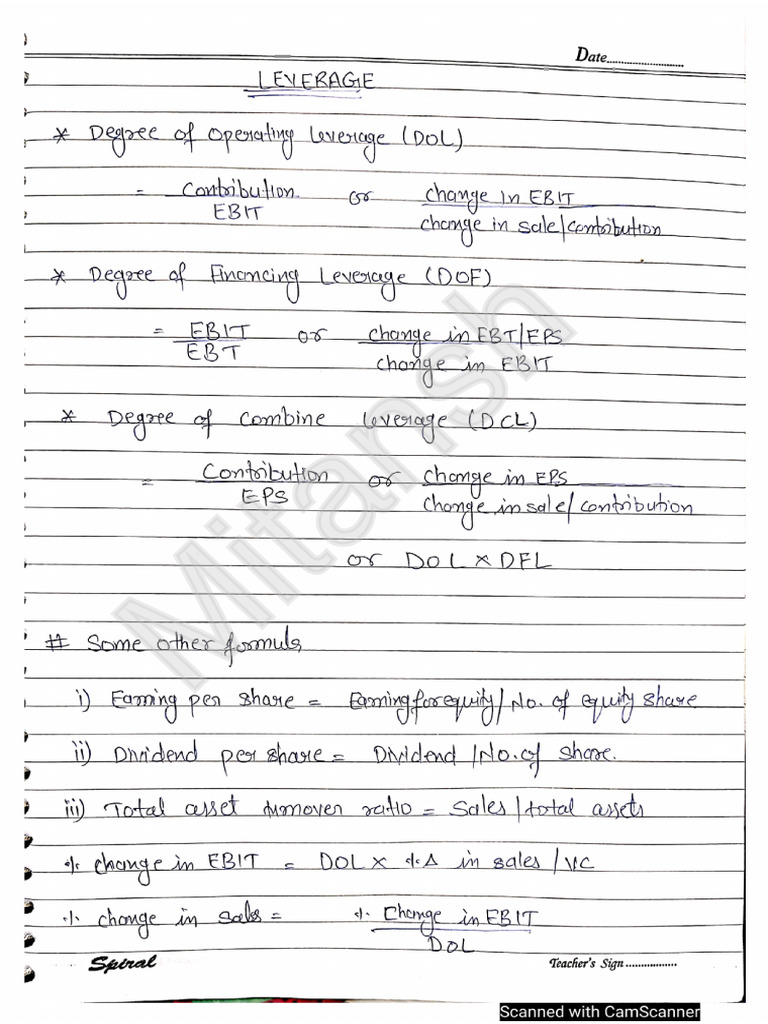 Date
LEVERAGE
* Degree of operating leverage (DOL)
= Contribution / EBIT or change in EBIT / change in sale/contribution
* Degree of Financing Leverage (DOF)
= EBIT / EBT or change in EBT/EPS / change in EBIT
* Degree of Combine leverage (DCL)
= Contribution / EPS or change in EPS / change in sale/contribution
or DOL × DFL
# Some other formuls
i) Earning per share = Earning for equity/No. of equity share
ii) Dividend per share = Dividend/No. of share.
iii) Total asset turnover ratio = Sales/total assets
% change in EBIT = DOL × % Δ in sales/VC
% change in sales = % Change in EBIT / DOL
Spiral Teacher's Sign
Mitansh
Scanned with CamScanner